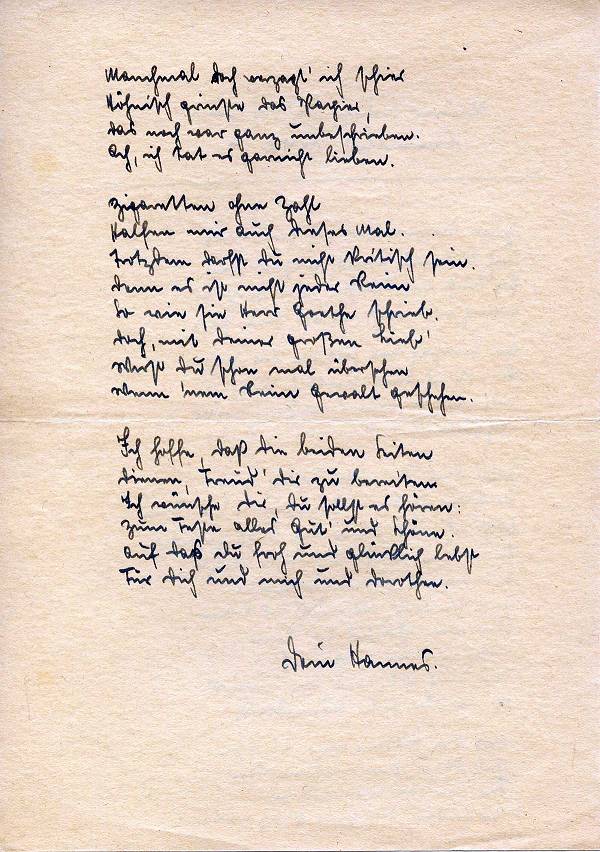 Manchmal doch verzagt' ich schier
Höhnisch grinste das Papier,
das noch war ganz unbeschrieben.
Ach, ich tat es garnicht lieben.
Zigaretten ohne Zahl
Halfen mir auch dieses Mal.
Trotzdem darfst du nicht kritisch sein.
denn es ist nicht jeder Reim
So wie sie Herr Goethe schrieb.
doch, mit deiner großen Lieb'
Wirst du schon mal übersehen
Wenn 'nem Reim Gewalt geschehen.
Ich hoffe, daß die beiden Seiten
dienen, Freud' dir zu bereiten
Ich wünsche dir, du sollst es hören:
Zum Feste alles Gut' und Schöne.
Auf daß du froh und glücklich lebst
Für dich und mich und Dorothee.
Dein Hannes.